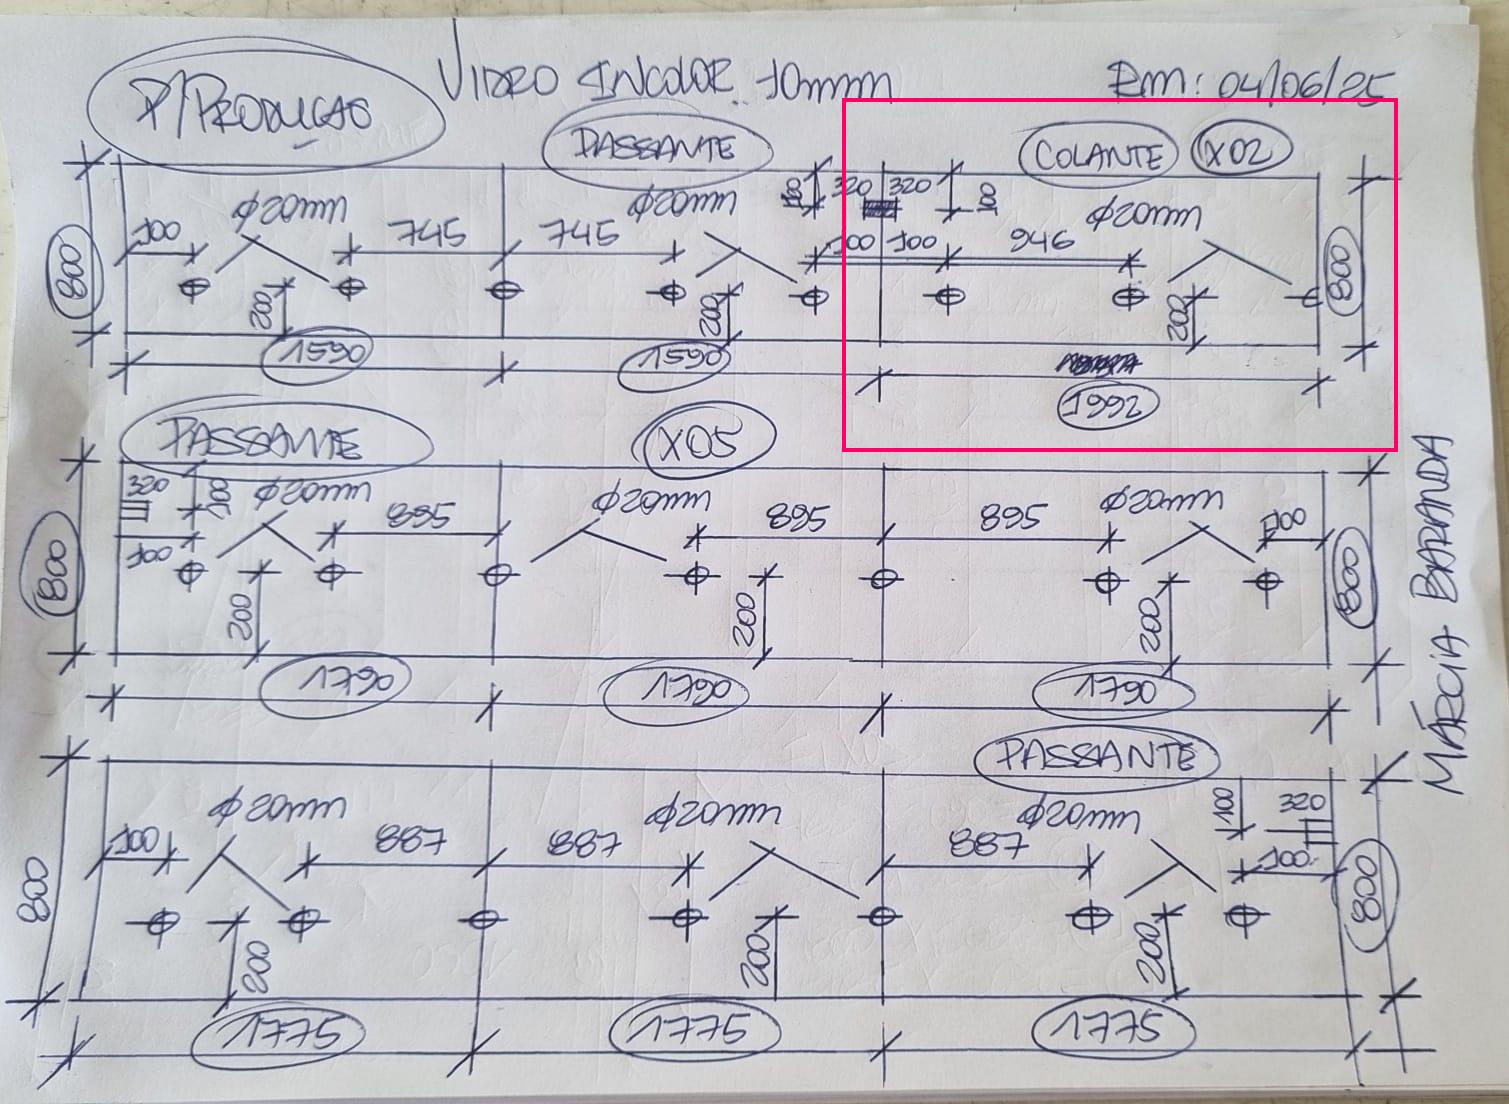 P/PRODUÇÃO
VIDRO INCOLOR 10mm
EM: 04/06/25
PASSANTE
COLANTE X02
100 320 320 100
Φ20mm Φ20mm Φ20mm
100 745 745 100 100 946
800 800
200 200 200
1590 1590 1992
PASSANTE X05
320 100 Φ20mm Φ20mm Φ20mm
895 895 895 100
100
800 800
200 200 200
1790 1790 1790
MÁRCIA BARANDA
PASSANTE
Φ20mm Φ20mm Φ20mm 100 320
100 887 887 887 100
800 800
200 200 200
1775 1775 1775